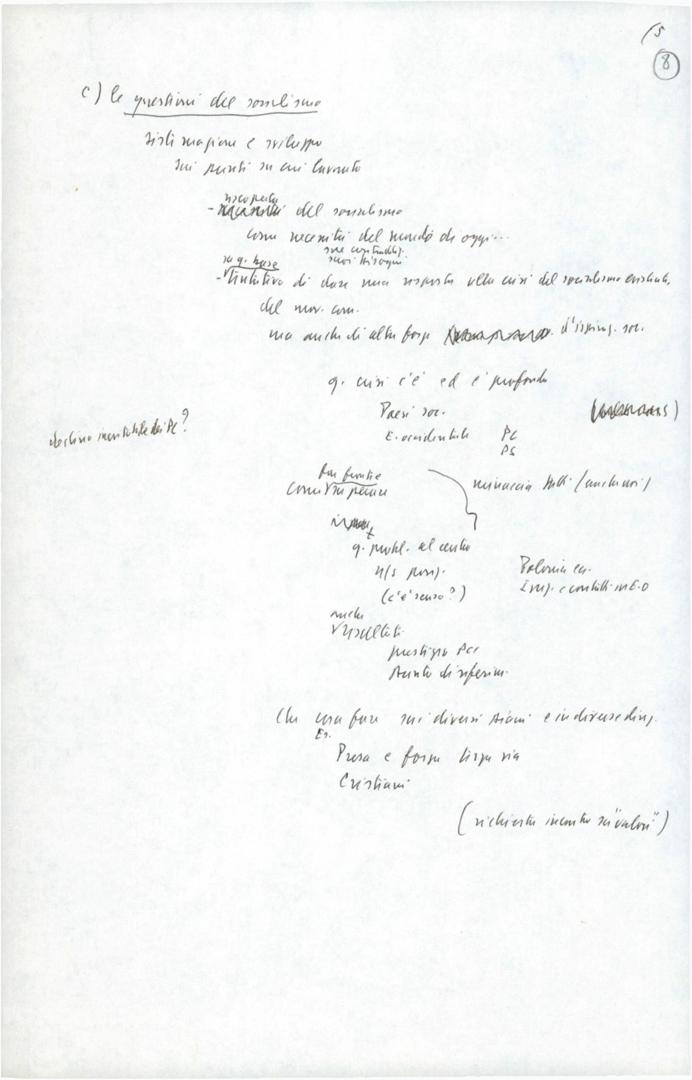 15
8
c) le questioni del socialismo
sistemazione e sviluppo
sui punti su cui lavorato
riscoperta
- del socialismo
come necessità del mondo di oggi...
sue contraddiz.
suoi bisogni
su q. base
- tentativo di dare una risposta alla crisi del socialismo esistente,
del mov. com.
ma anche di altre forze d'ispiraz. soc.
q. crisi c'è ed è profonda
Paesi soc.
declino inevitabile dei PC?
E. occidentale PC
PS
Due frontiere
minaccia tutti (anche noi)
q. probl. al centro
n/s posiz. Polonia ecc.
(c'è senso?) Iniz. e contatti in E.O
anche
risultati
prestigio PCI
Punto di riferim.
Che cosa fare sui diversi piani e in diverse direz.
Es.
Presa e forza terza via
Cristiani
(richiesta incontro su "valori")